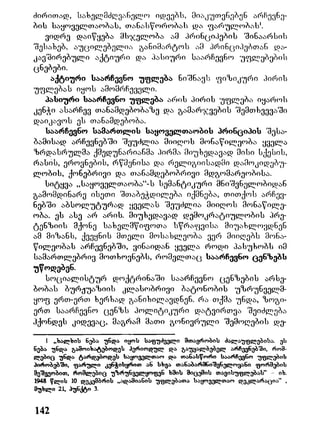 ძირითად, სახელმძღვანელო იდეებს, მიაკუთვნებენ არჩევნე-
ბის საყოველთაობას, თანასწორობას და ფარულობას¹.
ვიდრე დაიწყება მსჯელობა ამ პრინციპების შინაარსის
შესახებ, აუცილებელია განიმარტოს ამ პრინციპებთან და-
კავშირებული აქტიური და პასიური საარჩევნო უფლებების
ცნებები.
აქტიური საარჩევნო უფლება ნიშნავს ფიზიკური პირის
უფლებას იყოს ამომრჩეველი.
პასიური საარჩევნო უფლება არის პირის უფლება იყაროს
კენჭი ასარჩევ თანამდებობაზე და გამარჯვების შემთხვევაში
დაიკავოს ეს თანამდებობა.
საარჩევნო სამართლის საყოველთაობის პრინციპის შესა-
ბამისად არჩევნებში შეუძლია მიიღოს მონაწილეობა ყველა
ზრდასრულმა ქმედუნარიანმა პირმა მიუხედავად მისი სქესის,
რასის, ეროვნების, რწმენისა და რელიგიისადმი დამოკიდებუ-
ლების, ქონებრივი და თანამდებობრივი მდგომარეობისა.
სიტყვა „საყოველთაობა“-ს სემანტიკური მნიშვნელობიდან
გამომდინარე ისეთი შთაბეჭდილება იქმნება, თითქოს არჩევ-
ნებში აბსოლუტურად ყველას შეუძლია მიიღოს მონაწილე-
ობა. ეს ასე არ არის. მიუხედავად დემოკრატიულობის პრე-
ტენზიის მქონე სახელმწიფოთა სწრაფვისა მიუახლოვდნენ
ამ მიზანს, ქვეყნის მთელი მოსახლეობა ვერ მიიღებს მონა-
წილეობას არჩევნებში, ვინაიდან ყველა როდი პასუხობს იმ
სამართლებრივ მოთხოვნებს, რომელთაც საარჩევნო ცენზებს
უწოდებენ.
სოციალისტურ დოქტრინაში საარჩევნო ცენზების არსე-
ბობას ბურჟუაზიის კლასობრივი ბატონობის უზრუნველმ-
ყოფ ერთ-ერთ ხერხად განიხილავდნენ. რა თქმა უნდა, ზოგი-
ერთ საარჩევნო ცენზს პოლიტიკური დატვირთვა შეიძლება
ჰქონდეს კიდევაც, მაგრამ მათი გონივრული შემოღების დე-
1 „ხალხის ნება უნდა იყოს საფუძველი მთავრობის ძალაუფლებისა. ეს
ნება უნდა გამოიხატებოდეს პერიოდულ და გაუყალბებელ არჩევნებში, რომ-
ლებიც უნდა ტარდებოდეს საყოველთაო და თანასწორი საარჩევნო უფლების
პირობებში, ფარული კენჭისყრით ან სხვა თანაბარმნიშვნელოვანი ფორმების
მეშვეობით, რომლებიც უზრუნველყოფენ ხმის მიცემის თავისუფლებას“ – იხ.
1948 წლის 10 დეკემბრის „ადამიანის უფლებათა საყოველთაო დეკლარაცია“ ,
მუხლი 21, პუნქტი 3.
142